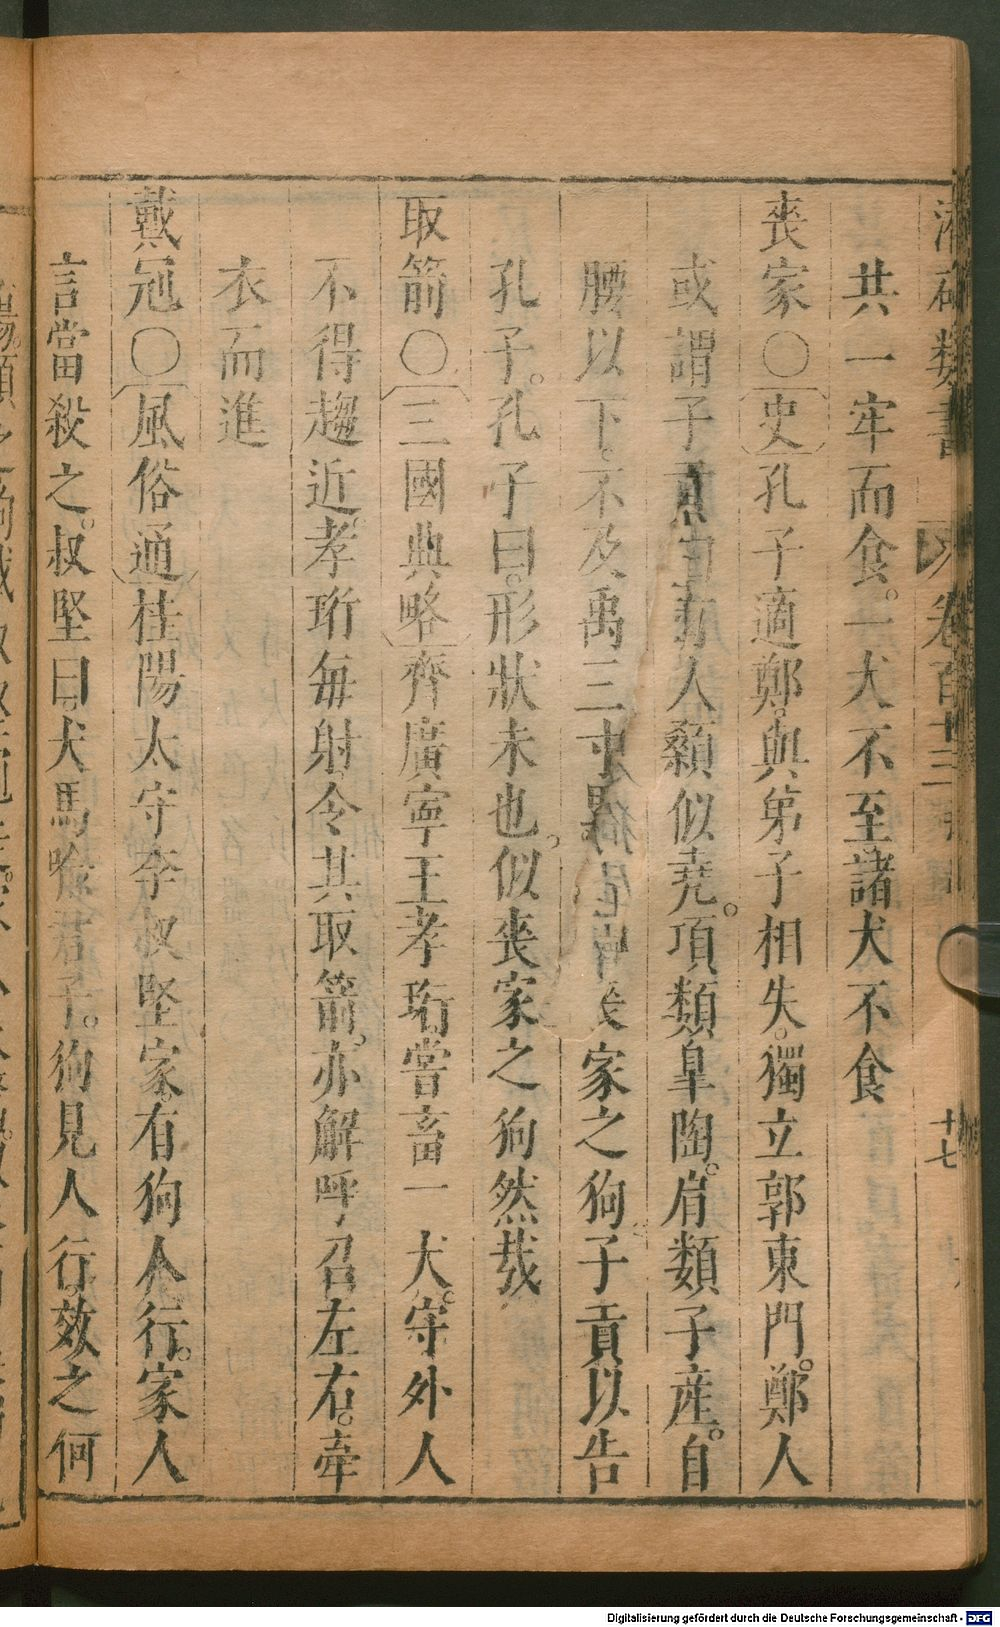 共一牢而食。一犬不至諸犬不食
喪家〇史孔子適鄭。與弟子相失。獨立郭東門。鄭人
或謂子貢 人顙似堯。項類皐陶。肩類子産。自
腰以下。不及禹三寸 家之狗。子貢以告
孔子。孔子曰。形狀未也。似喪家之狗然哉
取箭〇三國典略齊廣寧王孝珩嘗畜一犬。守外人
不得趨近。孝珩每射令其取箭。亦解呼召左右。牽
衣而進
戴冠〇風俗通桂陽太守李叔堅家。有狗人行。家人
言當殺之。叔堅曰。犬馬喻君子。狗見人行。效之何
卷百十三
十七
Digitalisierung gefördert durch die Deutsche Forschungsgemeinschaft - DFG